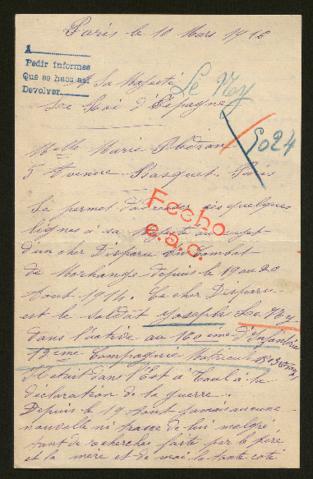 Paris le 10 Mars 1916
A
Pedir informes
Que se hace así
Devolver
Le Ney
A Sa Majesté
Le Roi d'Espagne
5024
Melle Marie
5 Avenue Bosquet Paris
Se permet d'adresser ces quelques
lignes à sa Majesté au sujet
d'un cher Disparu au Combat
de Morhange depuis le 19 au 20
Aout 1914. Ce cher Disparu
est le soldat Joseph Le Ney
dans l'active au 160 eme d'Infanterie
12 eme Compagnie Matricule
Il était dans l'Est à Toul à la
déclaration de la guerre.
Depuis le 19 Aout jamais aucune
nouvelle ni trace de lui malgré
tant de recherches faite par le père
et la mère et de moi de toute coté
Fecho